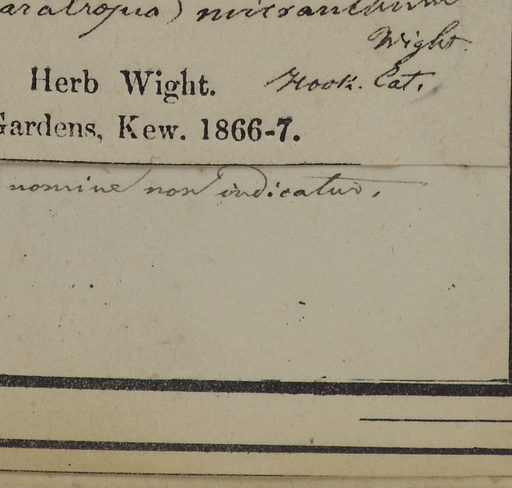 micranthum
Wight.
Herb Wight. Hook. Cat.
Gardens, Kew. 1866-7.
nomine non indicatur.